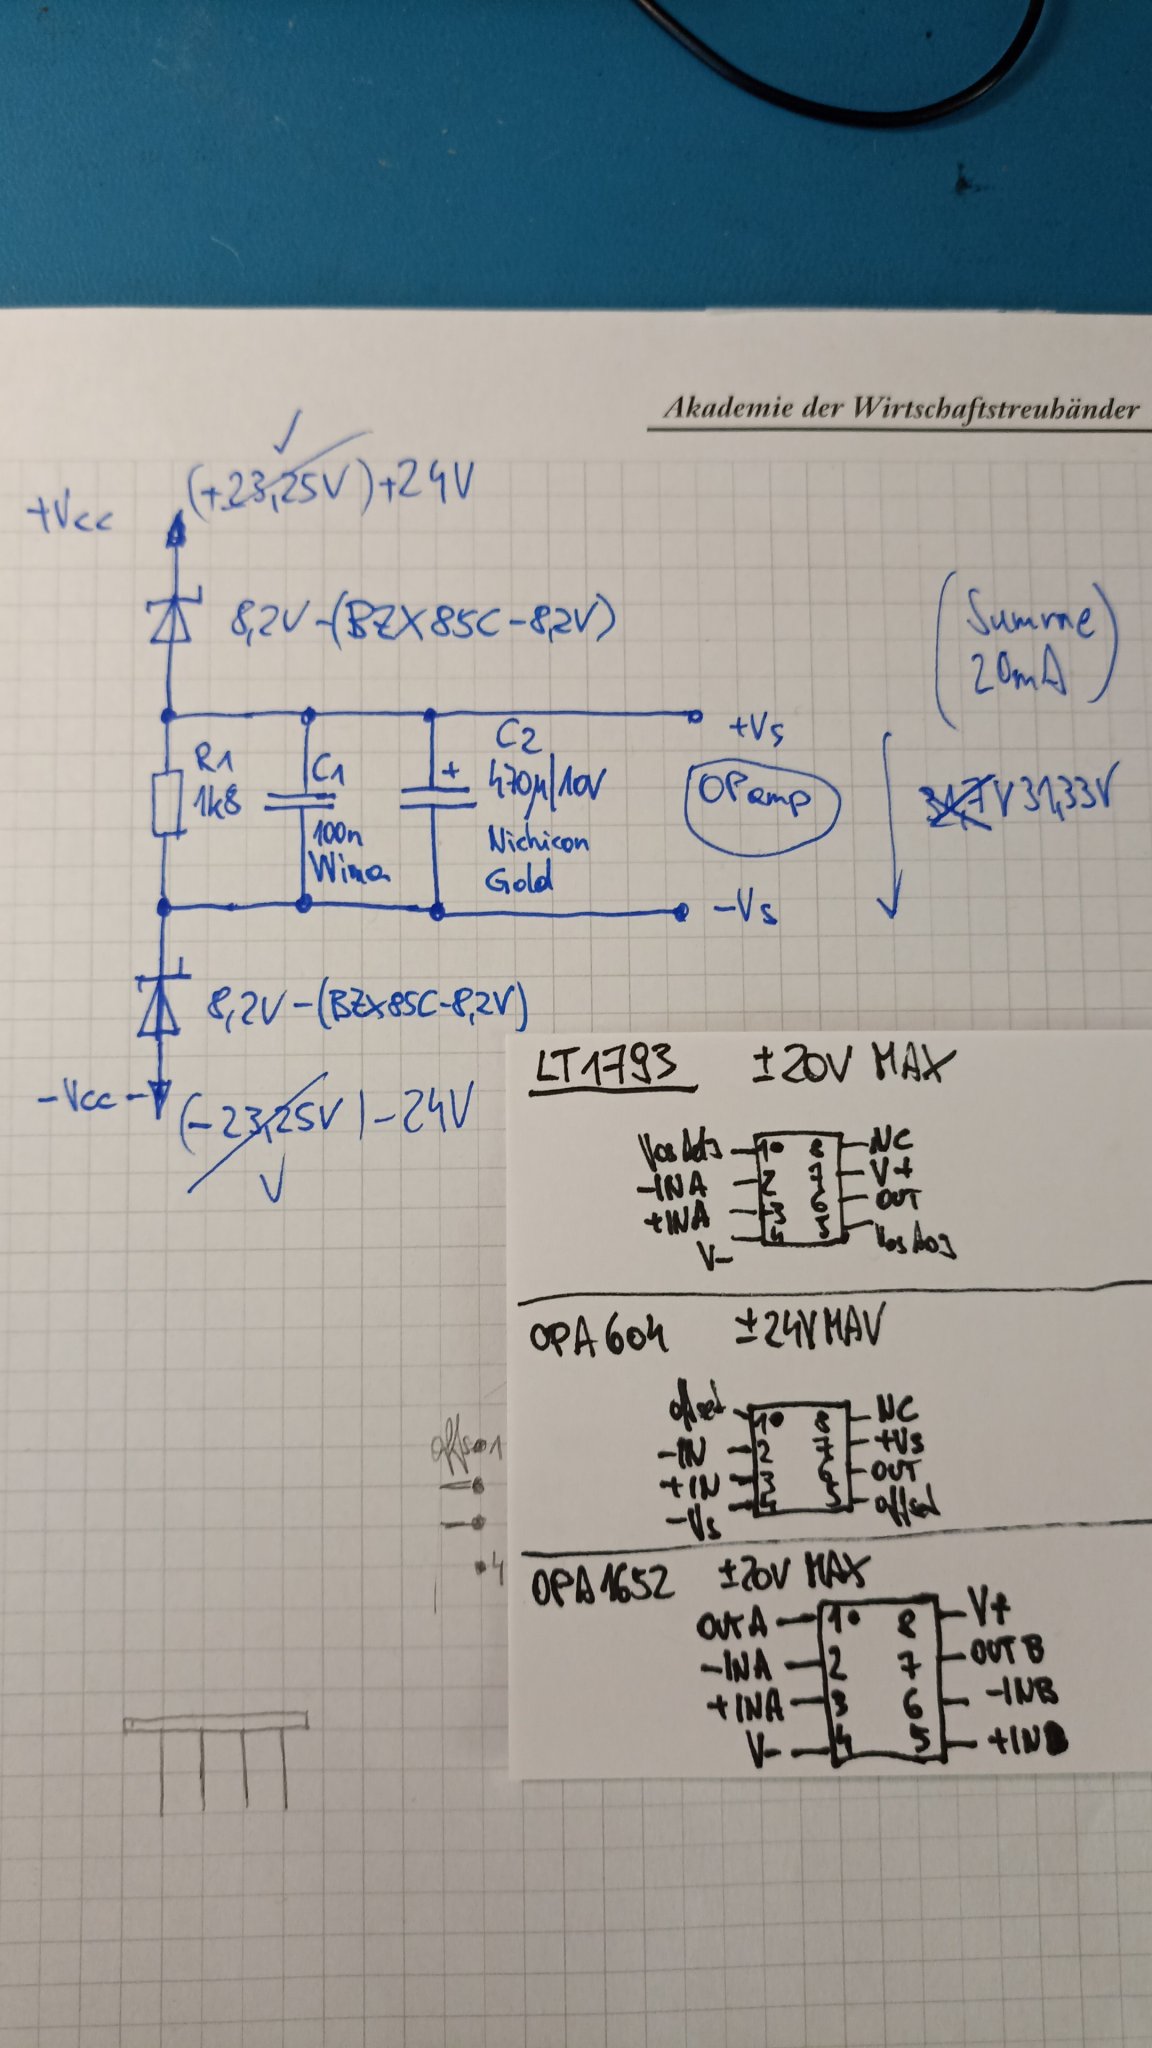 Akademie der Wirtschaftstreuhänder
✓
(+23,25V)+24V
+Vcc
8,2V-(BZX85C-8,2V)
(Summe
20mA)
+Vs
R1
1k8
C1
100n
Wima
+
C2
470µ/10V
Nichicon
Gold
OPamp
31,7V 31,33V
-Vs
8,2V-(BZX85C-8,2V)
-Vcc-
(-23,25V)-24V
✓
LT1793 ±20V MAX
VosAdj 1 8 NC
-INA 2 7 V+
+INA 3 6 OUT
V- 4 5 VosAdj
OPA604 ±24V MAV
offset 1 8 NC
-IN 2 7 +Vs
+IN 3 6 OUT
-Vs 4 5 offset
OPA1652 ±20V MAX
OUTA 1 8 V+
-INA 2 7 OUTB
+INA 3 6 -INB
V- 4 5 +INB
offs 1
4